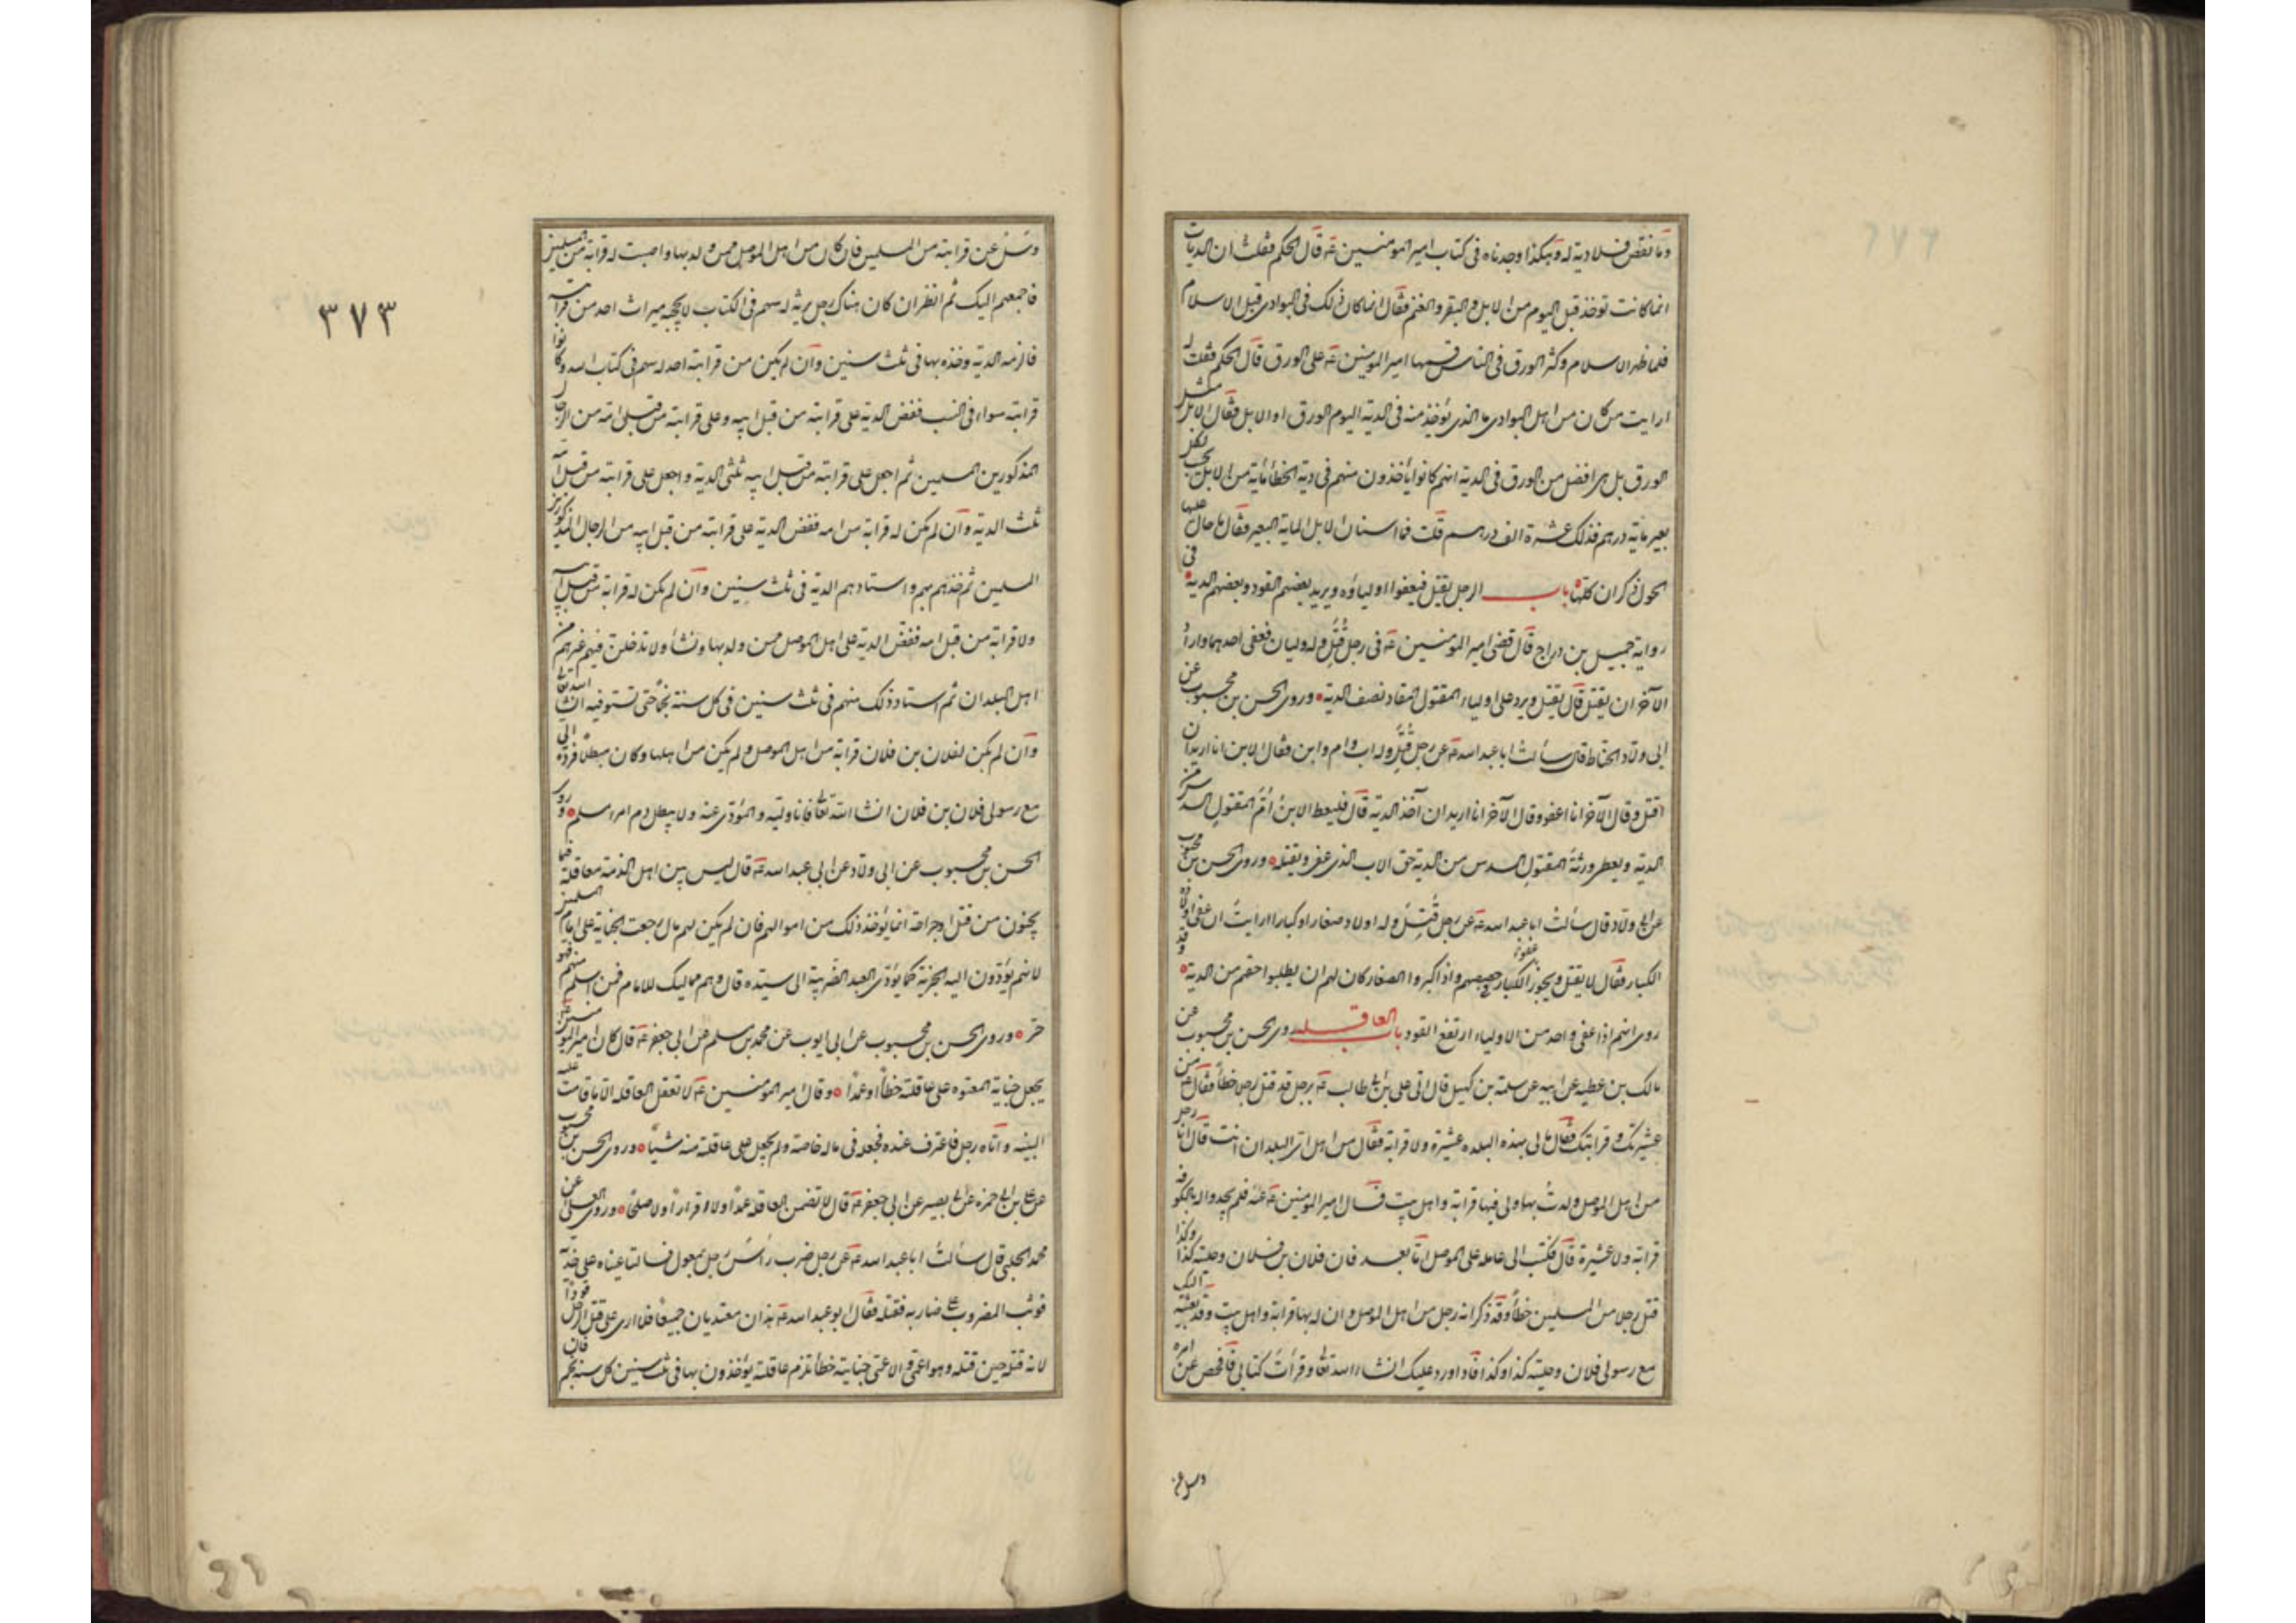 وما نقص فلا دية له وهكذا وجدناه في كتاب امير المومنين عه قال الحكم فقلت ان الديات
انما كانت توخذ قبل اليوم من الابل و البقر و الغنم فقال انما كان ذلك في البوادي قبل الاسلام
فلما ظهر الاسلام و كثر الورق في الناس قسمها امير المومنين عه على الورق قال الحكم فقلت له
ارايت من كان من اهل البوادي ما الذي يؤخذ منه في الدية اليوم الورق او الابل فقال الابل مثل
الورق بل هي افضل من الورق في الدية انهم كانوا يأخذون منهم في دية الخطأ ماية من الابل يحسب لكل
بعير ماية درهم فذلك عشرة الف درهم قلت فما اسنان الابل الماية البعير فقال ما حال عليها
الحول ذكران كلها باب الرجل يقتل فيعفوا اولياؤه ويريد بعضهم القود وبعضهم الدية في
رواية جميل بن دراج قال قضى امير المومنين عه في رجل قتل وله وليان فعفى احدهما واراد
الآخر ان يقتل قال يقتل ويرد على اولياء المقتول المقاد نصف الدية وروى الحسن بن محبوب عن
ابي ولاد الحناط قال سألت ابا عبد الله عه عن رجل قتل وله اب وام وابن فقال الابن انا اريد ان
اقتل وقال الآخر انا اعفو وقال الآخر انا اريد ان آخذ الدية قال فليعط الابن أم المقتول السدس من
الدية ويعطي ورثة المقتول السدس من الدية حق الاب الذي عفى ويقتله وروى الحسن بن محبوب
عن ابي ولاد قال سألت ابا عبد الله عه عن رجل قتل وله اولاد صغار او كبار ارايت ان عفى اولاده
الكبار فقال لا يقتل ويجوز عفو الكبار في حصصهم واذا كبروا الصغار كان لهم ان يطلبوا حقهم من الدية وقد
روى انهم اذا عفى واحد من الاولياء ارتفع القود باب العاقلة روى الحسن بن محبوب عن
مالك بن عطيه عن ابيه عن سلمة بن كهيل قال اتى علي بن ابي طالب عه برجل قد قتل رجلا خطأ فقال عه من
عشيرتك و قرابتك فقال ما لي بهذه البلده عشيرة ولا قرابة فقال من اهل اى البلدان انت قال انا رجل
من اهل الموصل ولدت بها ولي فيها قرابة واهل بيت فسال امير المومنين عه عنه فلم يجدوا له بالكوفه
قرابة ولا عشيرة قال فكتب الى عامله على الموصل اما بعد فان فلان بن فلان وحليته كذا وكذا
قتل رجلا من المسلمين خطأ وقد ذكر انه رجل من اهل الموصل و ان له بها قرابة واهل بيت وقد بعثته اليك
مع رسولي فلان وحليته كذا وكذا فاذا ورد عليك انشاء الله تعا وقرأت كتابي فافحص عن امره
وسل عن
٣٧٣
وسل عن قرابته من المسلمين فان كان من اهل الموصل ممن ولد بها واصبت له قرابة من المسلمين
فاجمعهم اليك ثم انظر ان كان هناك رجل يرثه له سهم في الكتاب لا يحجبه ميراث احد من قرابته
فالزمه الدية وخذه بها في ثلث سنين وان لم يكن من قرابته احد له سهم في كتاب الله وكانوا
قرابته سواء في النسب ففض الدية على قرابته من قبل ابيه وعلى قرابته من قبل امه من الرجال
المذكورين المسلمين ثم اجعل على قرابته من قبل ابيه ثلثي الدية واجعل على قرابته من قبل امه
ثلث الدية وان لم يكن له قرابة من امه ففض الدية على قرابته من قبل ابيه من الرجال المذكورين
المسلمين ثم خذهم بهم واستادهم الدية في ثلث سنين وان لم يكن له قرابة من قبل ابيه
ولا قرابة من قبل امه ففض الدية على اهل الموصل ممن ولد بها ونشأ ولا تدخلن فيهم غيرهم من
اهل البلدان ثم استاد ذلك منهم في ثلث سنين في كل سنة نجما حتى تستوفيه انشا الله تعا
وان لم يكن لفلان بن فلان قرابة من اهل الموصل ولم يكن من اهلها وكان مبطلا فرده الي
مع رسولي فلان بن فلان انشا الله تعا فانا وليه والمؤدى عنه ولا يبطل دم امرء مسلم وروى
الحسن بن محبوب عن ابي ولاد عن ابي عبد الله عه قال ليس بين اهل الذمة معاقلة فيما
يجنون من قتل او جراحة انما يؤخذ ذلك من اموالهم فان لم يكن لهم مال رجعت الجناية على امام المسلمين
لانهم يؤدون اليه الجزية كما يؤدى العبد الضريبة الى سيده قال وهم مماليك للامام فمن اسلم منهم فهو
حر وروى الحسن بن محبوب عن ابي ايوب عن محمد بن مسلم عن ابي جعفر عه قال كان امير المومنين عه
يجعل جناية المعتوه على عاقلته خطأ او عمدا وقال امير المومنين عه لا تعقل العاقله الا ما قامت عليه
البينه واتاه رجل فاعترف عنده فجعله في ماله خاصة ولم يجعل على عاقلته منه شيئا وروى الحسن بن محبوب
عن علي بن ابي حمزه عن ابي بصير عن ابي جعفر عه قال لا تضمن العاقله عمدا ولا اقرارا ولا صلحا وروى العلا عن
محمد الحلبي قال سألت ابا عبد الله عه عن رجل ضرب رأس رجل بمعول فسالتا عيناه على خديه
فوثب المضروب على ضاربه فقتله فقال ابو عبد الله عه هذان معتديان جميعا فلا ارى على قتل الرجل قودا
لانه قتله حين قتله وهو اعمى والاعمى جنايته خطأ تلزم عاقلته يؤخذون بها في ثلث سنين كل سنة نجم فان